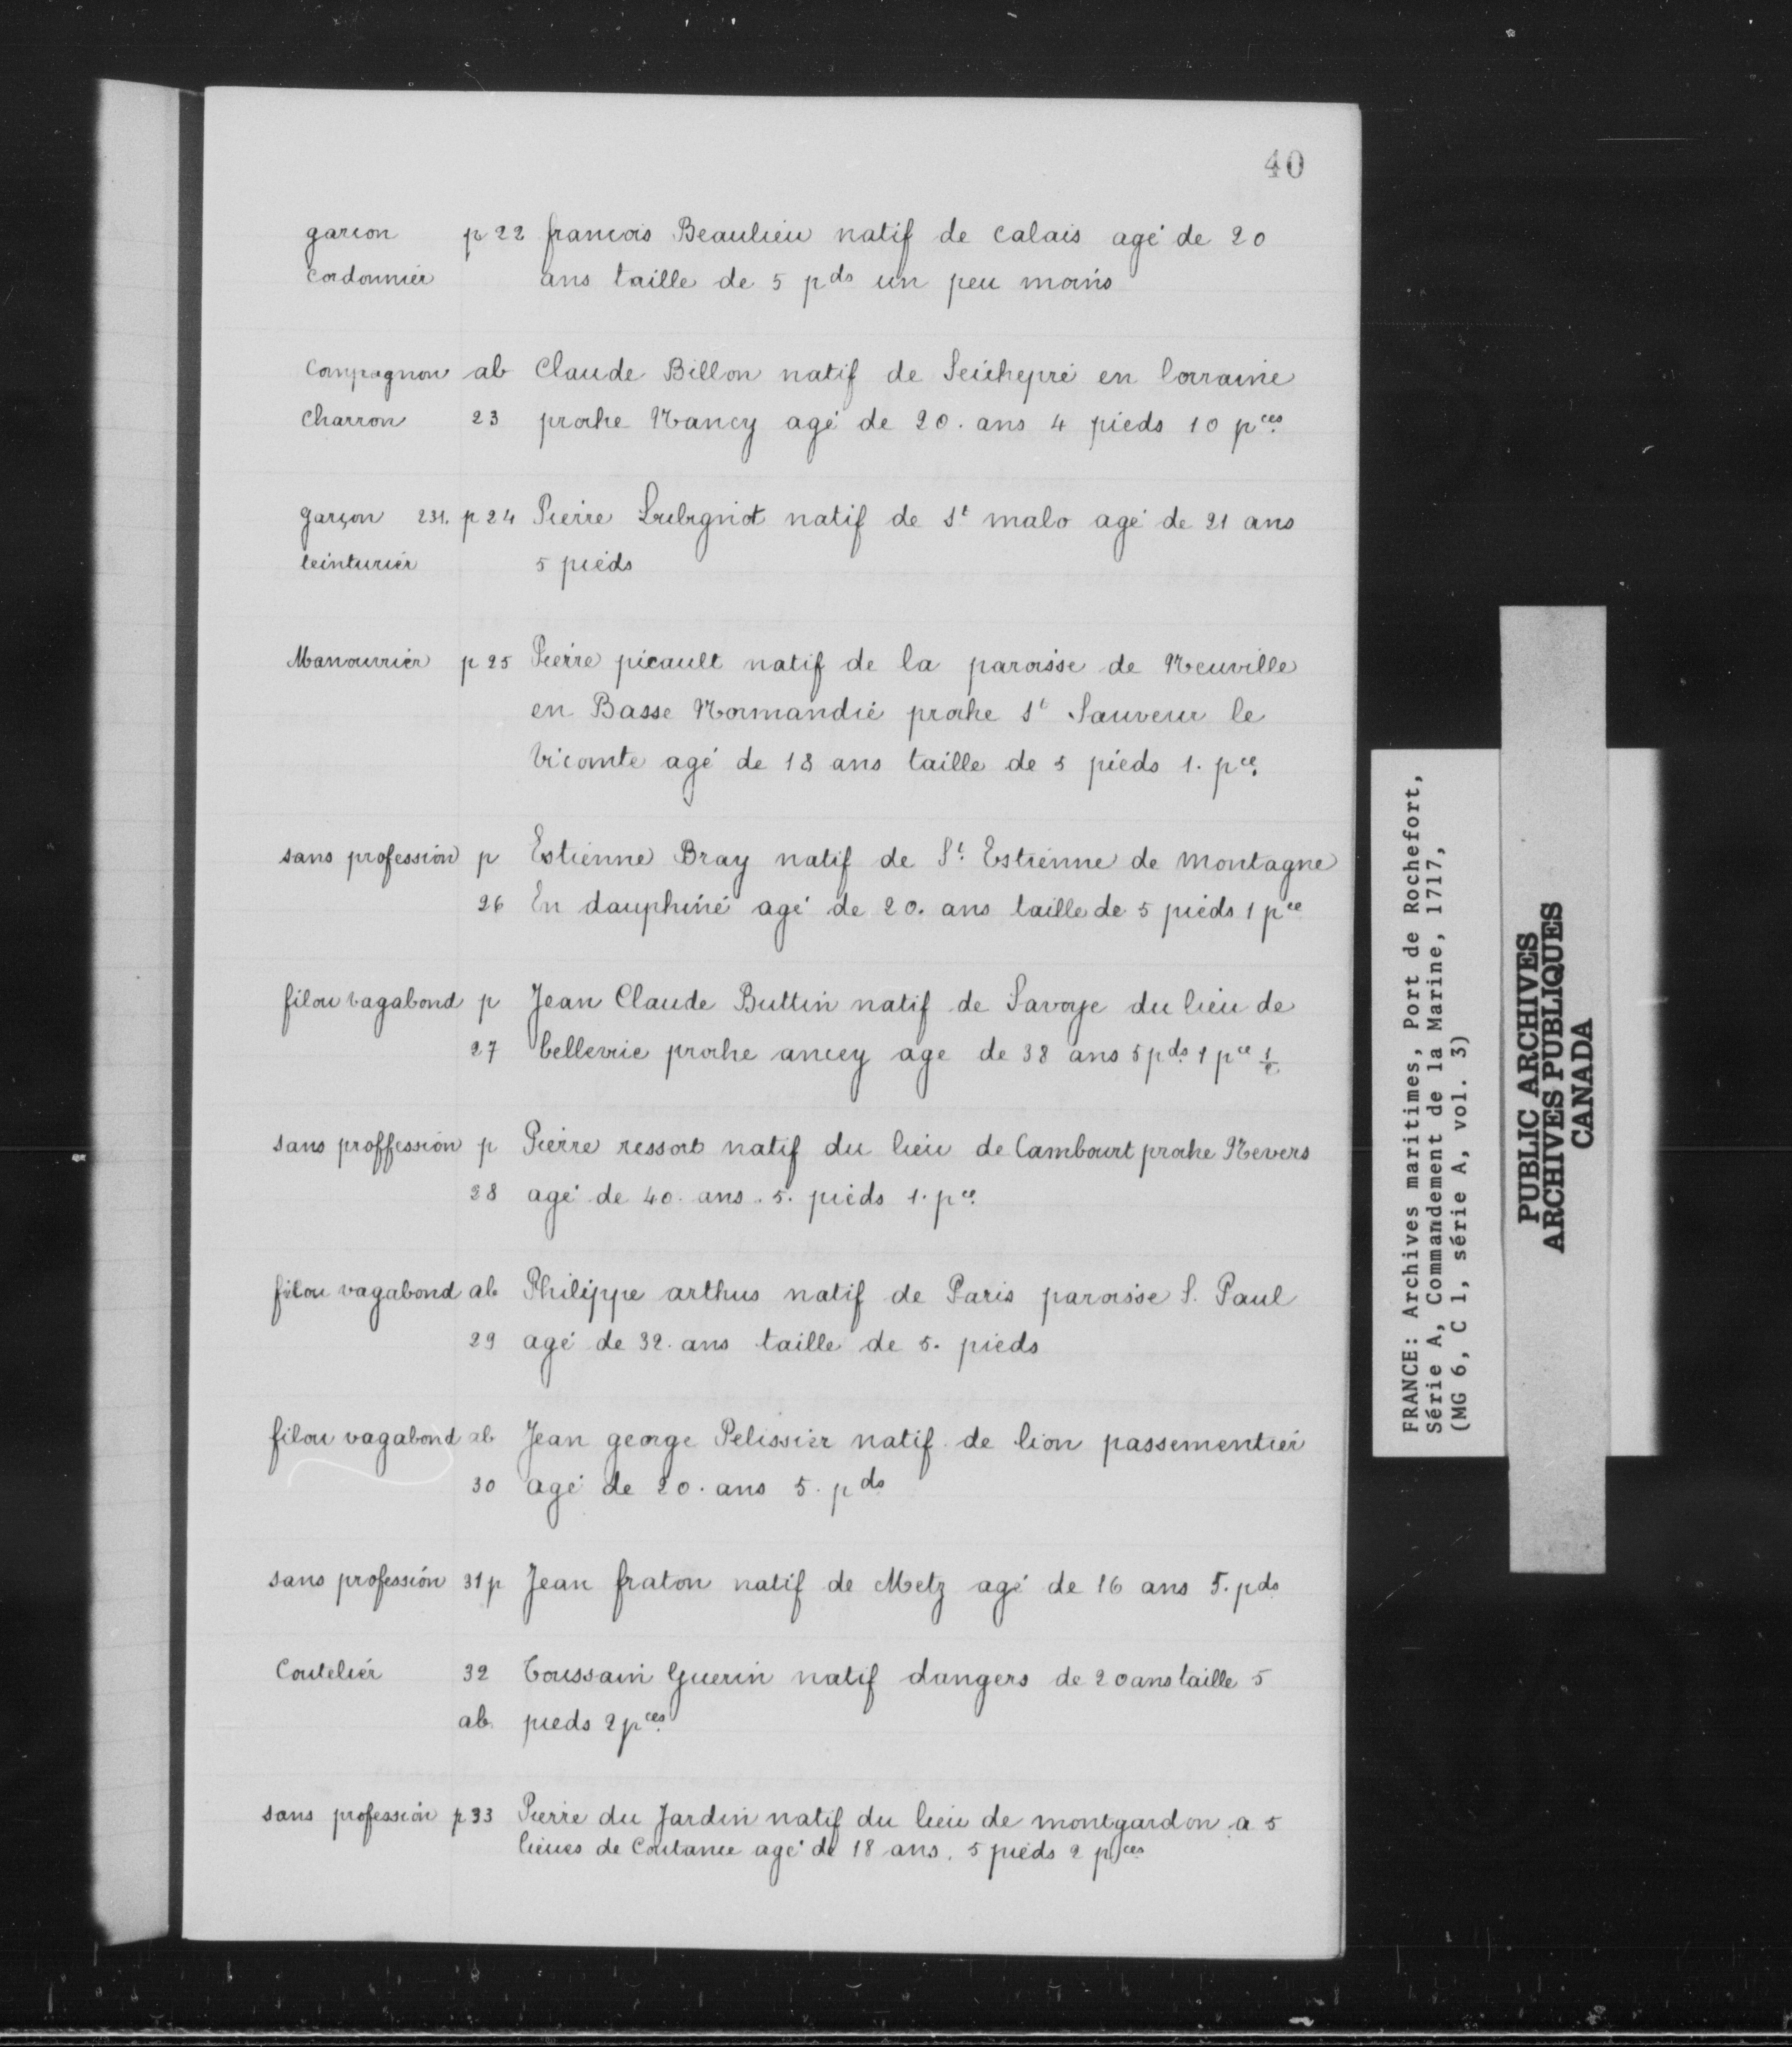 40
garcon p 22 francois Beaulieu natif de calais agé de 20
cordonnier ans taille de 5 pds un peu moins
Compagnon ab Claude Billon natif de Seichepré en lorraine
charron 23 proche Nancy agé de 20. ans 4 pieds 10 pces
garçon 231. p 24 Pierre natif de St malo agé de 21 ans
teinturier 5 pieds
Manouvrier p 25 Pierre picault natif de la paroisse de Neuville
en Basse Normandie proche St Sauveur le
Vicomte agé de 18 ans taille de 5 pieds 1. pce
sans profession p Estienne Bray natif de St Estienne de montagne
26 En dauphiné agé de 20. ans taille de 5 pieds 1 pce
filou vagabond p Jean Claude Buttin natif de Savoye du lieu de
27 bellevie proche ancy age de 38 ans 5 pds 1 pce 1/2
sans proffession p Pierre ressort natif du lieu de Cambourt proche Nevers
28 agé de 40. ans. 5. pieds 1. pce
filou vagabond ab Philippe arthus natif de Paris paroisse S. Paul
29 agé de 32. ans taille de 5. pieds
filou vagabond ab Jean george Pelissier natif de lion passementier
30 agé de 20. ans 5. pds
sans profession 31 p Jean fraton natif de Metz agé de 16 ans 5. pds
Coutelier 32 Toussain Guerin natif dangers de 20 ans taille 5
ab. pieds 2 pces
sans profession p 33 Pierre du Jardin natif du lieu de montgardon a 5
lieues de Coutance agé de 18 ans. 5 pieds 2 pces
FRANCE: Archives maritimes, Port de Rochefort,
Série A, Commandement de la Marine, 1717,
(MG 6, C 1, série A, vol. 3)
PUBLIC ARCHIVES
ARCHIVES PUBLIQUES
CANADA